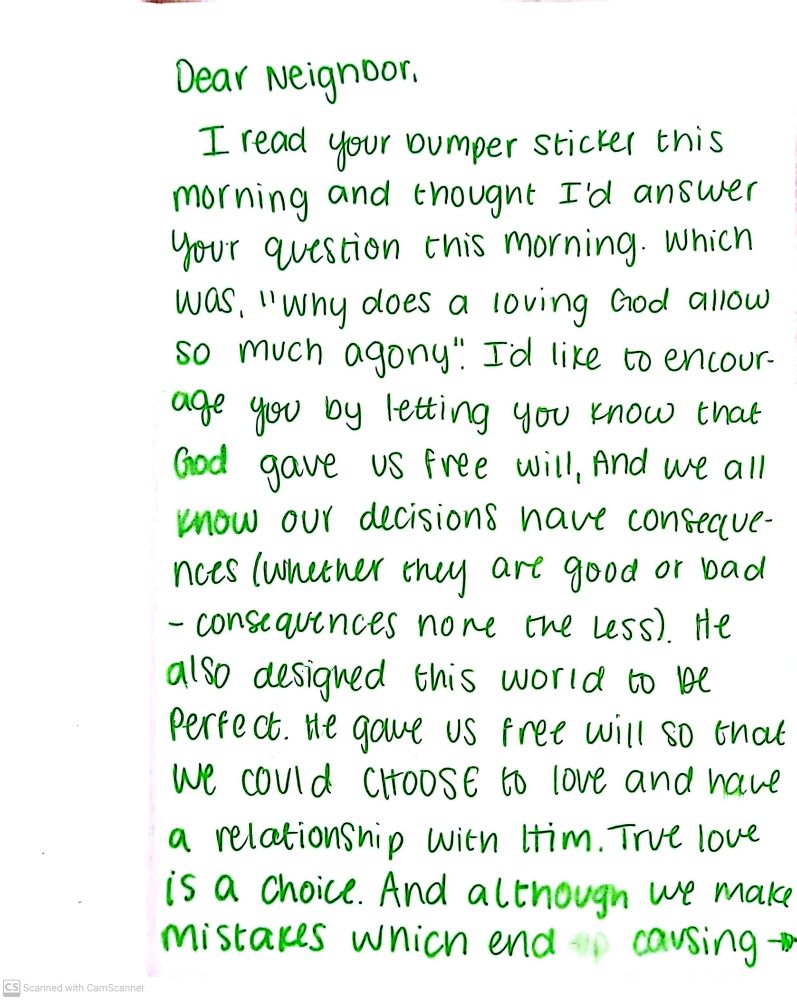 Dear Neighbor,
I read your bumper sticker this
morning and thought I'd answer
your question this morning. Which
was, "Why does a loving God allow
so much agony". I'd like to encour-
age you by letting you know that
God gave us free will, And we all
know our decisions have conseque-
nces (whether they are good or bad
- consequences none the less). He
also designed this world to be
perfect. He gave us free will so that
we could CHOOSE to love and have
a relationship with Him. True love
is a choice. And although we make
mistakes which end up causing →
CS Scanned with CamScanner